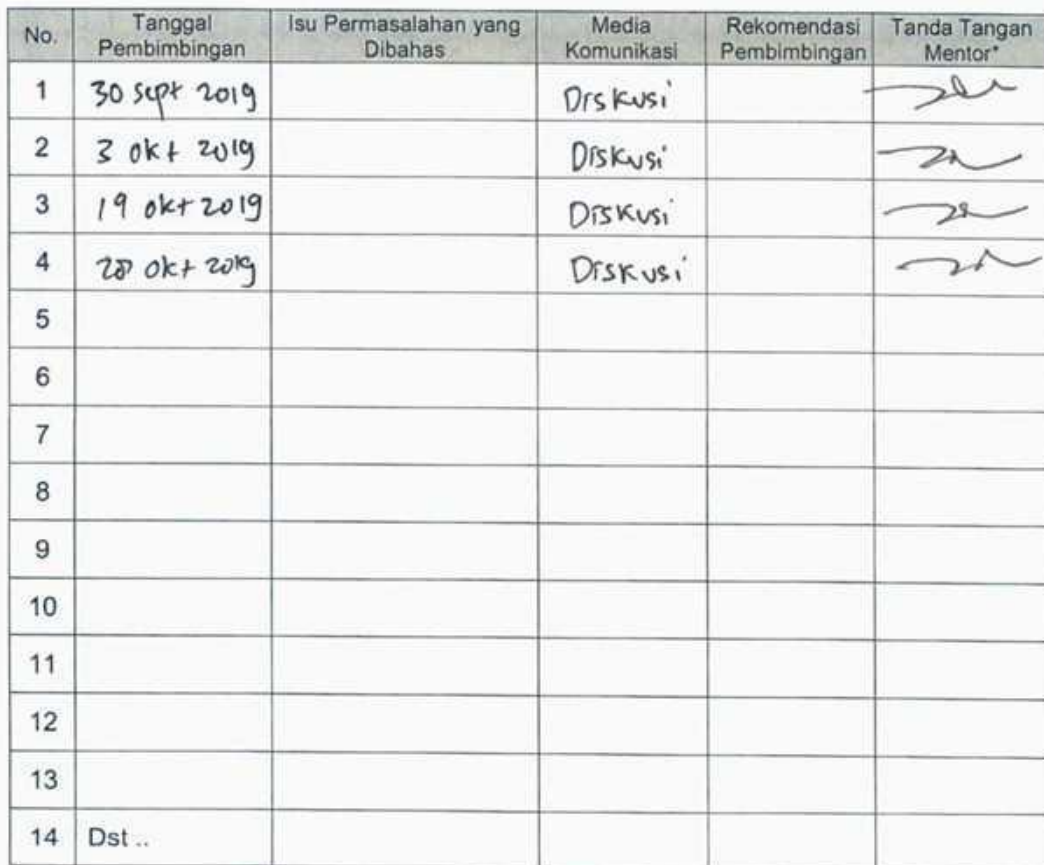 No. Tanggal Pembimbingan Isu Permasalahan yang Dibahas Media Komunikasi Rekomendasi Pembimbingan Tanda Tangan Mentor*
1 30 sept 2019 Diskusi
2 3 okt 2019 Diskusi
3 19 okt 2019 Diskusi
4 28 okt 2019 Diskusi
5
6
7
8
9
10
11
12
13
14 Dst ..